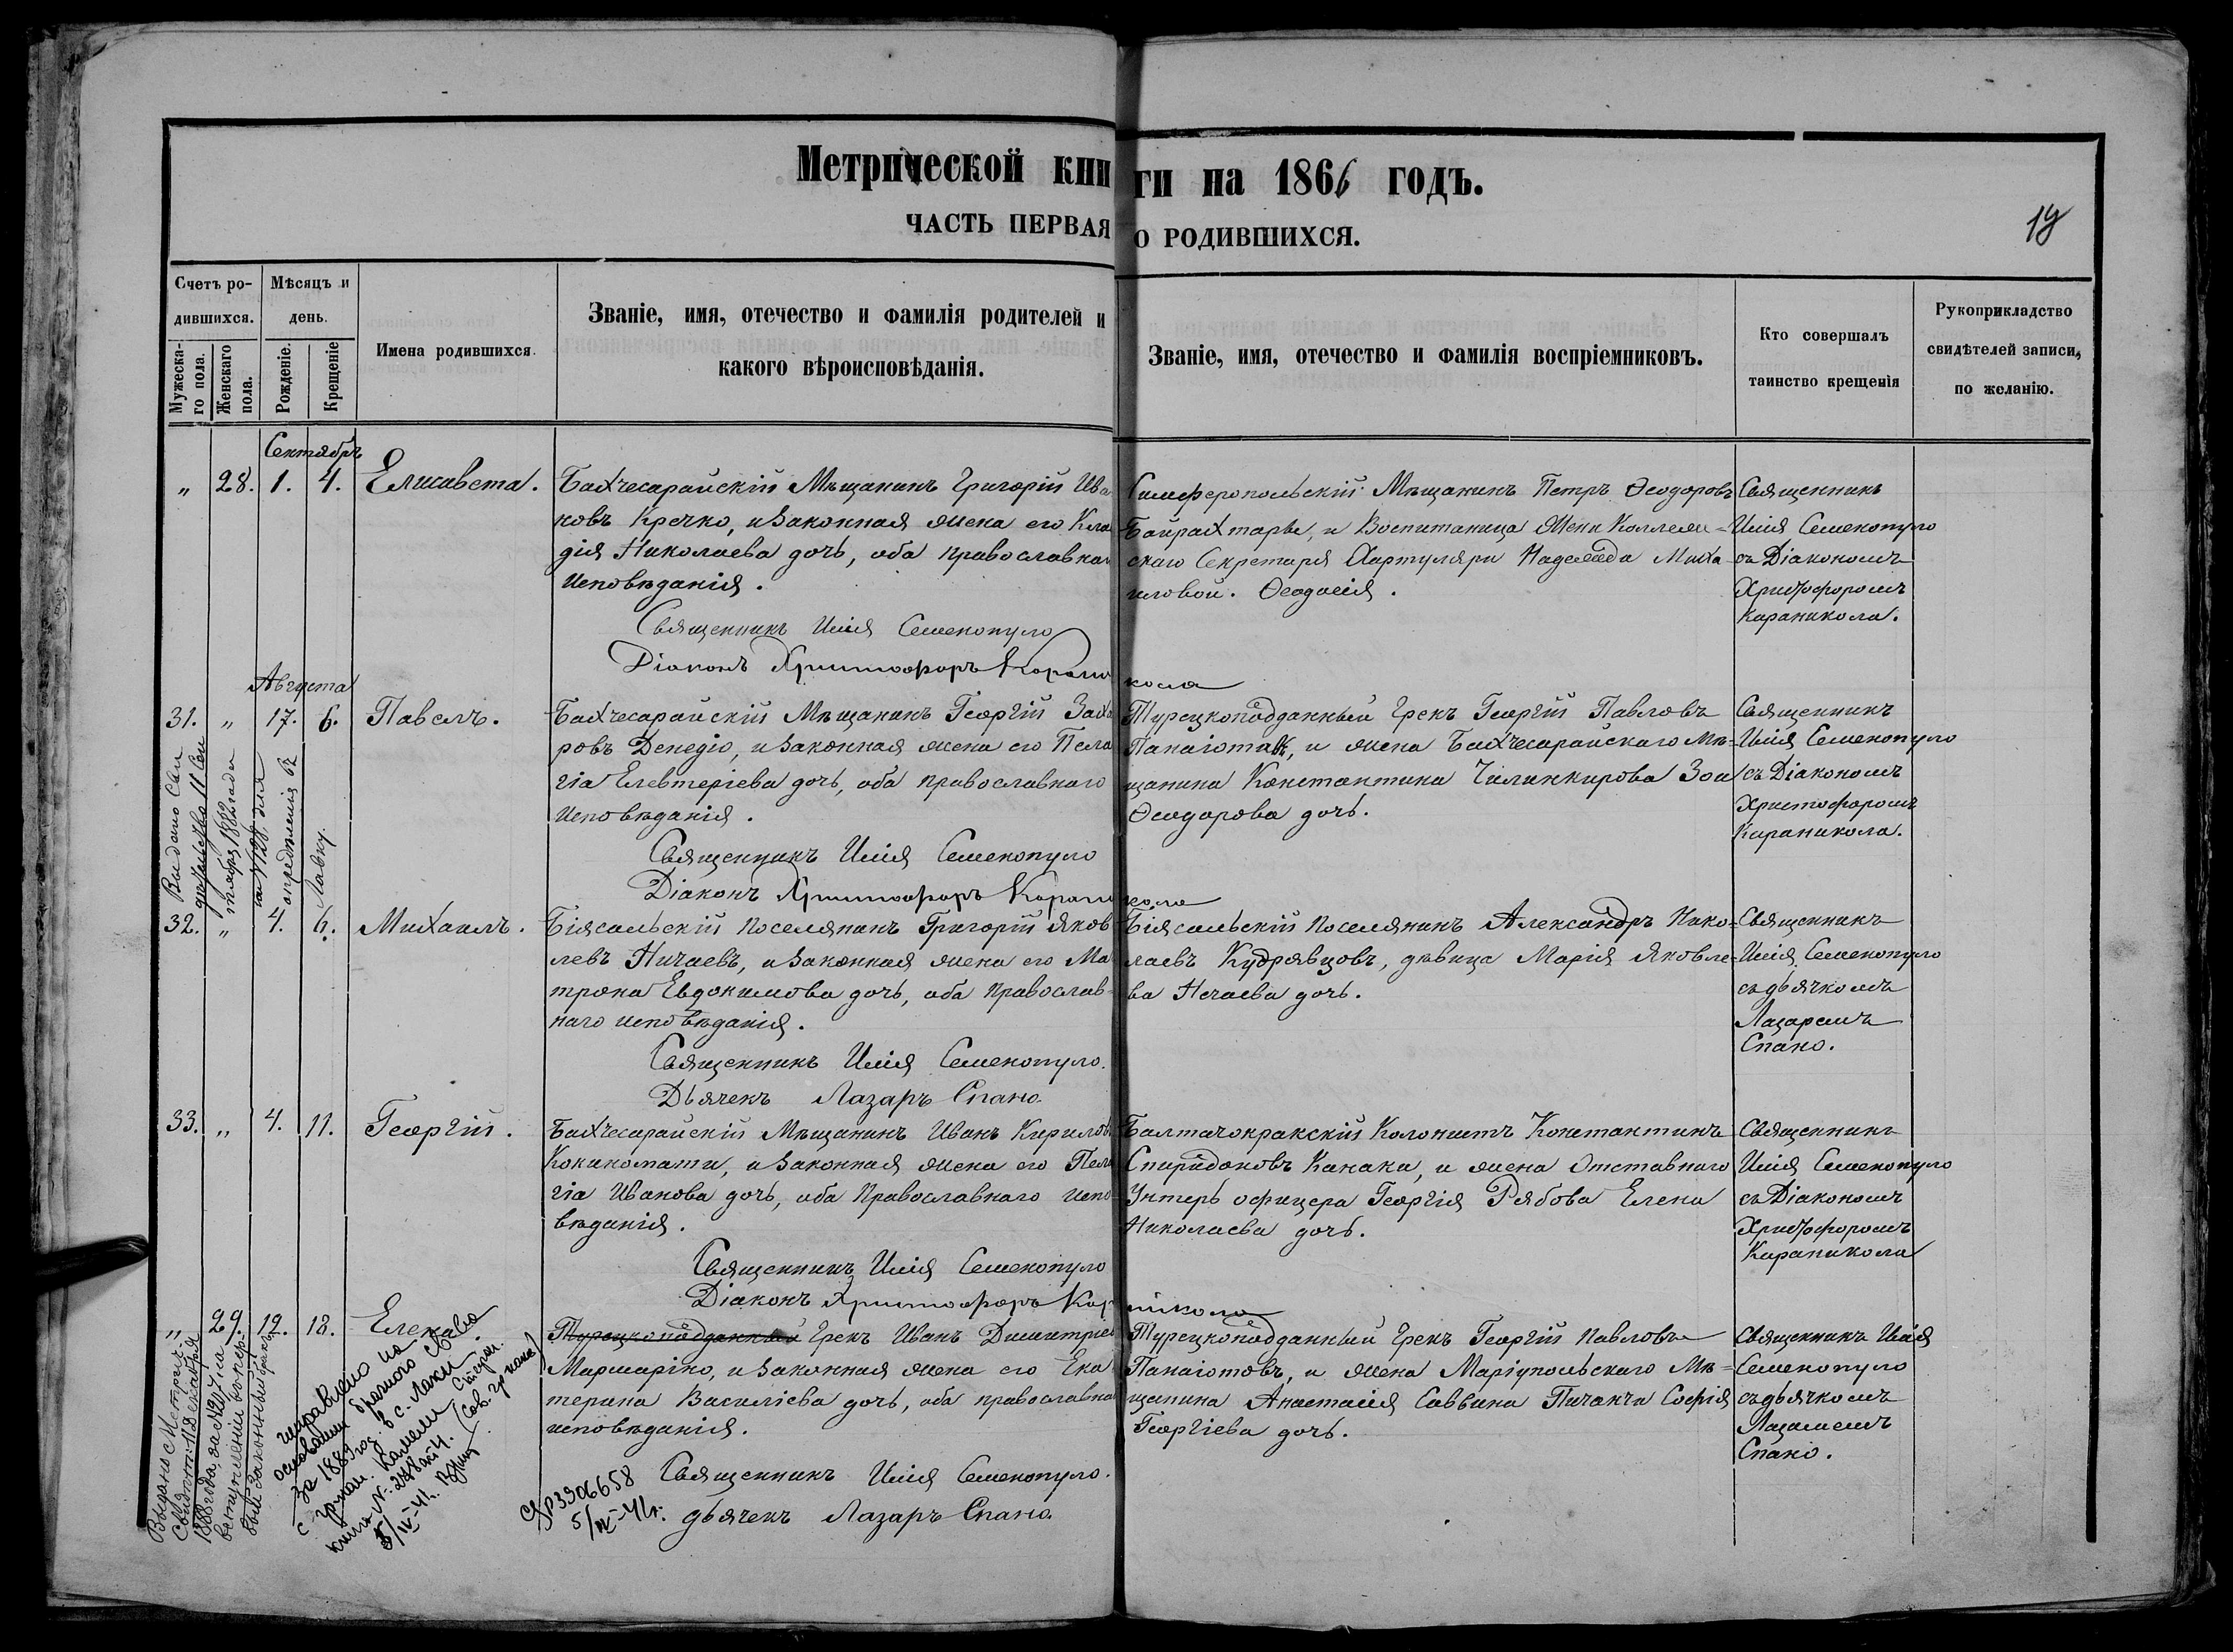 Метрической книги на 1866 годъ.
ЧАСТЬ ПЕРВАЯ О РОДИВШИХСЯ.
19
Счетъ ро-
дившихся.
Мужеска-
го пола.
Женскаго
пола.
Мѣсяцъ и
день.
Рожденіе.
Крещеніе
Имена родившихся.
Званіе, имя, отечество и фамилія родителей и
какого вѣроисповѣданія.
Званіе, имя, отечество и фамилія воспріемниковъ.
Кто совершалъ
таинство крещенія
Рукоприкладство
свидѣтелей записи,
по желанію.
Сентябрь
" 28. 1. 4. Елисавета.
Бахчесарайскій Мѣщанинъ Григорій Ива
новъ Кречко, и Законная жена его Кла
дія Николаева дочь, оба православнаго
исповѣданія.
Священникъ Илія Семенопуло
Діаконъ Христофоръ Караникола
Симферопольскій Мѣщанинъ Петръ Ѳеодоровъ
Байрахтаръ, и Воспитаница Жены Коллеж-
скаго Секретаря Хартуляри Надежда Миха
иловой. Ѳеодосія.
Священникъ
Илія Семенопуло
съ Діакономъ
Христофоромъ
Караникола.
Августа
31. " 17. 6. Павелъ.
Бахчесарайскій Мѣщанинъ Георгій Заха
ровъДенедіо, и Законная жена его Пела
гіа Елевтеріева дочь, оба православнаго
исповѣданія.
Священникъ Илія Семенопуло
Діаконъ Христофоръ Караникола
Турецкоподданный Грекъ Георгій Павловъ
Панаіотовъ, и жена Бахчесарайскаго Мѣ-
щанина Константина Чилинкирова Зои
Ѳеодорова дочь.
Священникъ
Илія Семенопуло
съ Діакономъ
Христофоромъ
Караникола.
Выдано Сви
дѣтельство 11 Сен
тября 1882 года
за № 128 для
опредѣленія въ
Лавку.
32. " 4. 6. Михаилъ.
Біясальскій Поселянинъ Григорій Яков
левъ Ничаевъ, и Законная жена его Ма
трона Евдокимова дочь, оба Православ-
наго исповѣданія.
Священникъ Илія Семенопуло.
Дьячекъ Лазаръ Спано.
Біясальскій Поселянинъ Александръ Нико-
лаевъ Кудрявцовъ, дѣвица Марія Яковле-
ва Нечаева дочь.
Священникъ
Илія Семенопуло
съ дьячкомъ
Лазаремъ
Спано.
33. " 4. 11. Георгій.
Бахчесарайскій Мѣщанинъ Иванъ Кириловъ
Кокиномати, и Законная жена его Пела
гіа Иванова дочь, оба Православнаго испо
вѣданія.
Священникъ Илія Семенопуло
Діаконъ Христофоръ Караникола
Балтачокракскій Колонистъ Константинъ
Спиридоновъ Канаки, и жена Отставнаго
Унтеръ офицера Георгія Рябова Елена
Николаева дочь.
Священникъ
Илія Семенопуло
съ Діакономъ
Христофоромъ
Караникола
" 29. 12. 18. Елена.
Турецкоподданный Грекъ Иванъ Димитріев
Мармаріно, и Законная жена его Ека
терина Василіева дочь, оба православна
исповѣданія.
Священникъ Илія Семенопуло.
дьячекъ Лазаръ Спано.
Турецкоподданный Грекъ Георгій Павловъ
Панаіотовъ, и жена Маріупольскаго Мѣ-
щанина Анастасія Саввина Пичакчи Софія
Георгіева дочь.
Священникъ Илія
Семенопуло
съ дьячкомъ
Лазаремъ
Спано.
Выдано Метрич.
Свидѣт. 11 Декабря
1888 года, за №
вступленіи въ пер-
вый Законный бракъ
исправлено на
основании брачного св-ва
за 1889 год. в с. Лаки
5/IV-41.
3306658
5/IV-41г.